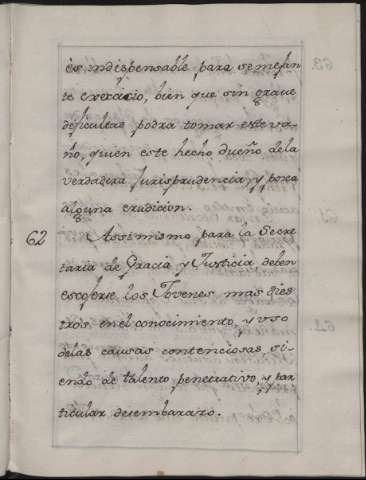 es indispensable para semejan
te exercicio, bien que sin grave
deficultad podra tomar este va
ño, quien este hecho dueño dela
verdadera Jurisprudencia, y posea
alguna erudicion.
62 Assimismo para la Secre
taria de Gracia y Justicia deben
escojerse los Jovenes mas dies
tros en el conocimiento, y uso
delas causas contenciosas si
endo de talento penetrativo, y par
ticular desembarazo.